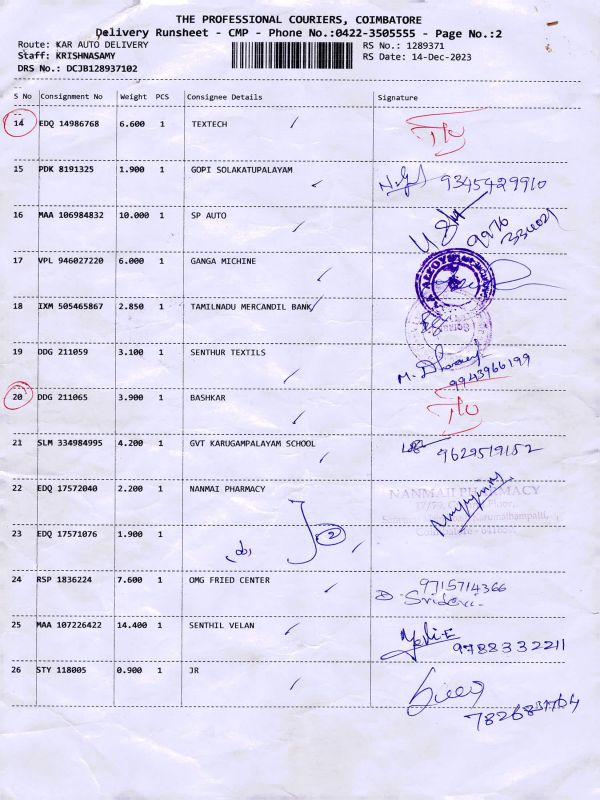 THE PROFESSIONAL COURIERS, COIMBATORE
Delivery Runsheet - CMP - Phone No.:0422-3505555 - Page No.:2
Route: KAR AUTO DELIVERY RS No.: 1289371
Staff: KRISHNASAMY RS Date: 14-Dec-2023
DRS No.: DCJB128937102
S No Consignment No Weight PCS Consignee Details Signature
14 EDQ 14986768 6.600 1 TEXTECH
15 PDK 8191325 1.900 1 GOPI SOLAKATUPALAYAM
9345429910
16 MAA 106984832 10.000 1 SP AUTO
17 VPL 946027220 6.000 1 GANGA MICHINE
18 IXM 505465867 2.850 1 TAMILNADU MERCANDIL BANK
19 DDG 211059 3.100 1 SENTHUR TEXTILS
9943966199
20 DDG 211065 3.900 1 BASHKAR
21 SLM 334984995 4.200 1 GVT KARUGAMPALAYAM SCHOOL
9629519152
22 EDQ 17572040 2.200 1 NANMAI PHARMACY
NANMAI PHARMACY
23 EDQ 17571076 1.900 1
2
24 RSP 1836224 7.600 1 OMG FRIED CENTER
9715714366
25 MAA 107226422 14.400 1 SENTHIL VELAN
9788332211
26 STY 118005 0.900 1 JR